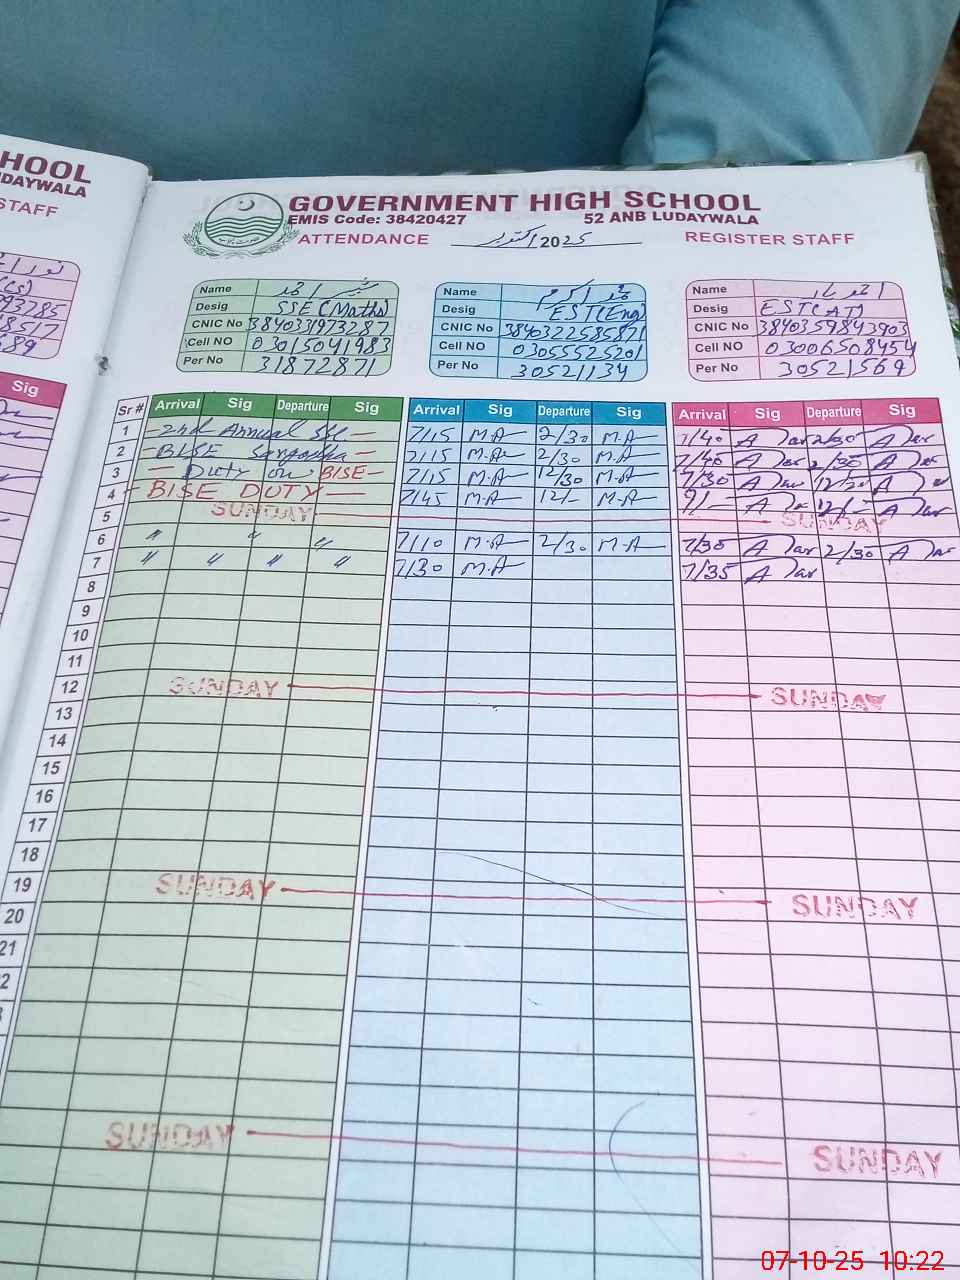 HOOL
DAYWALA
STAFF
(CS)
Sig
GOVERNMENT HIGH SCHOOL
EMIS Code: 38420427 52 ANB LUDAYWALA
ATTENDANCE اکتوبر 2025 REGISTER STAFF
Name
Desig SSE (Maths)
CNIC No 3840331973287
Cell NO 03015041983
Per No 31872871
Name محمد اکرم
Desig EST(Eng)
CNIC No 3840322585871
Cell NO 03055525201
Per No 30521134
Name
Desig EST(AT)
CNIC No 3840359843903
Cell NO 03006508454
Per No 30521569
Sr # Arrival Sig Departure Sig Arrival Sig Departure Sig Arrival Sig Departure Sig
1 2nd Annual SSC 7/15 M.A 2/30 M.A 7/40
2 BISE Sargodha 7/15 M.A 2/30 M.A 7/40 2/30
3 Duty on BISE 7/15 M.A 12/30 M.A 7/30 12/30
4 BISE DUTY 7/45 M.A 12/- M.A 9/- 12/-
5 SUNDAY SUNDAY
6 " " " 7/10 M.A 2/30 M.A 7/35 2/30
7 " " " " 7/30 M.A 7/35
8
9
10
11
12 SUNDAY SUNDAY
13
14
15
16
17
18
19 SUNDAY SUNDAY
20
21
SUNDAY SUNDAY
07-10-25 10:22